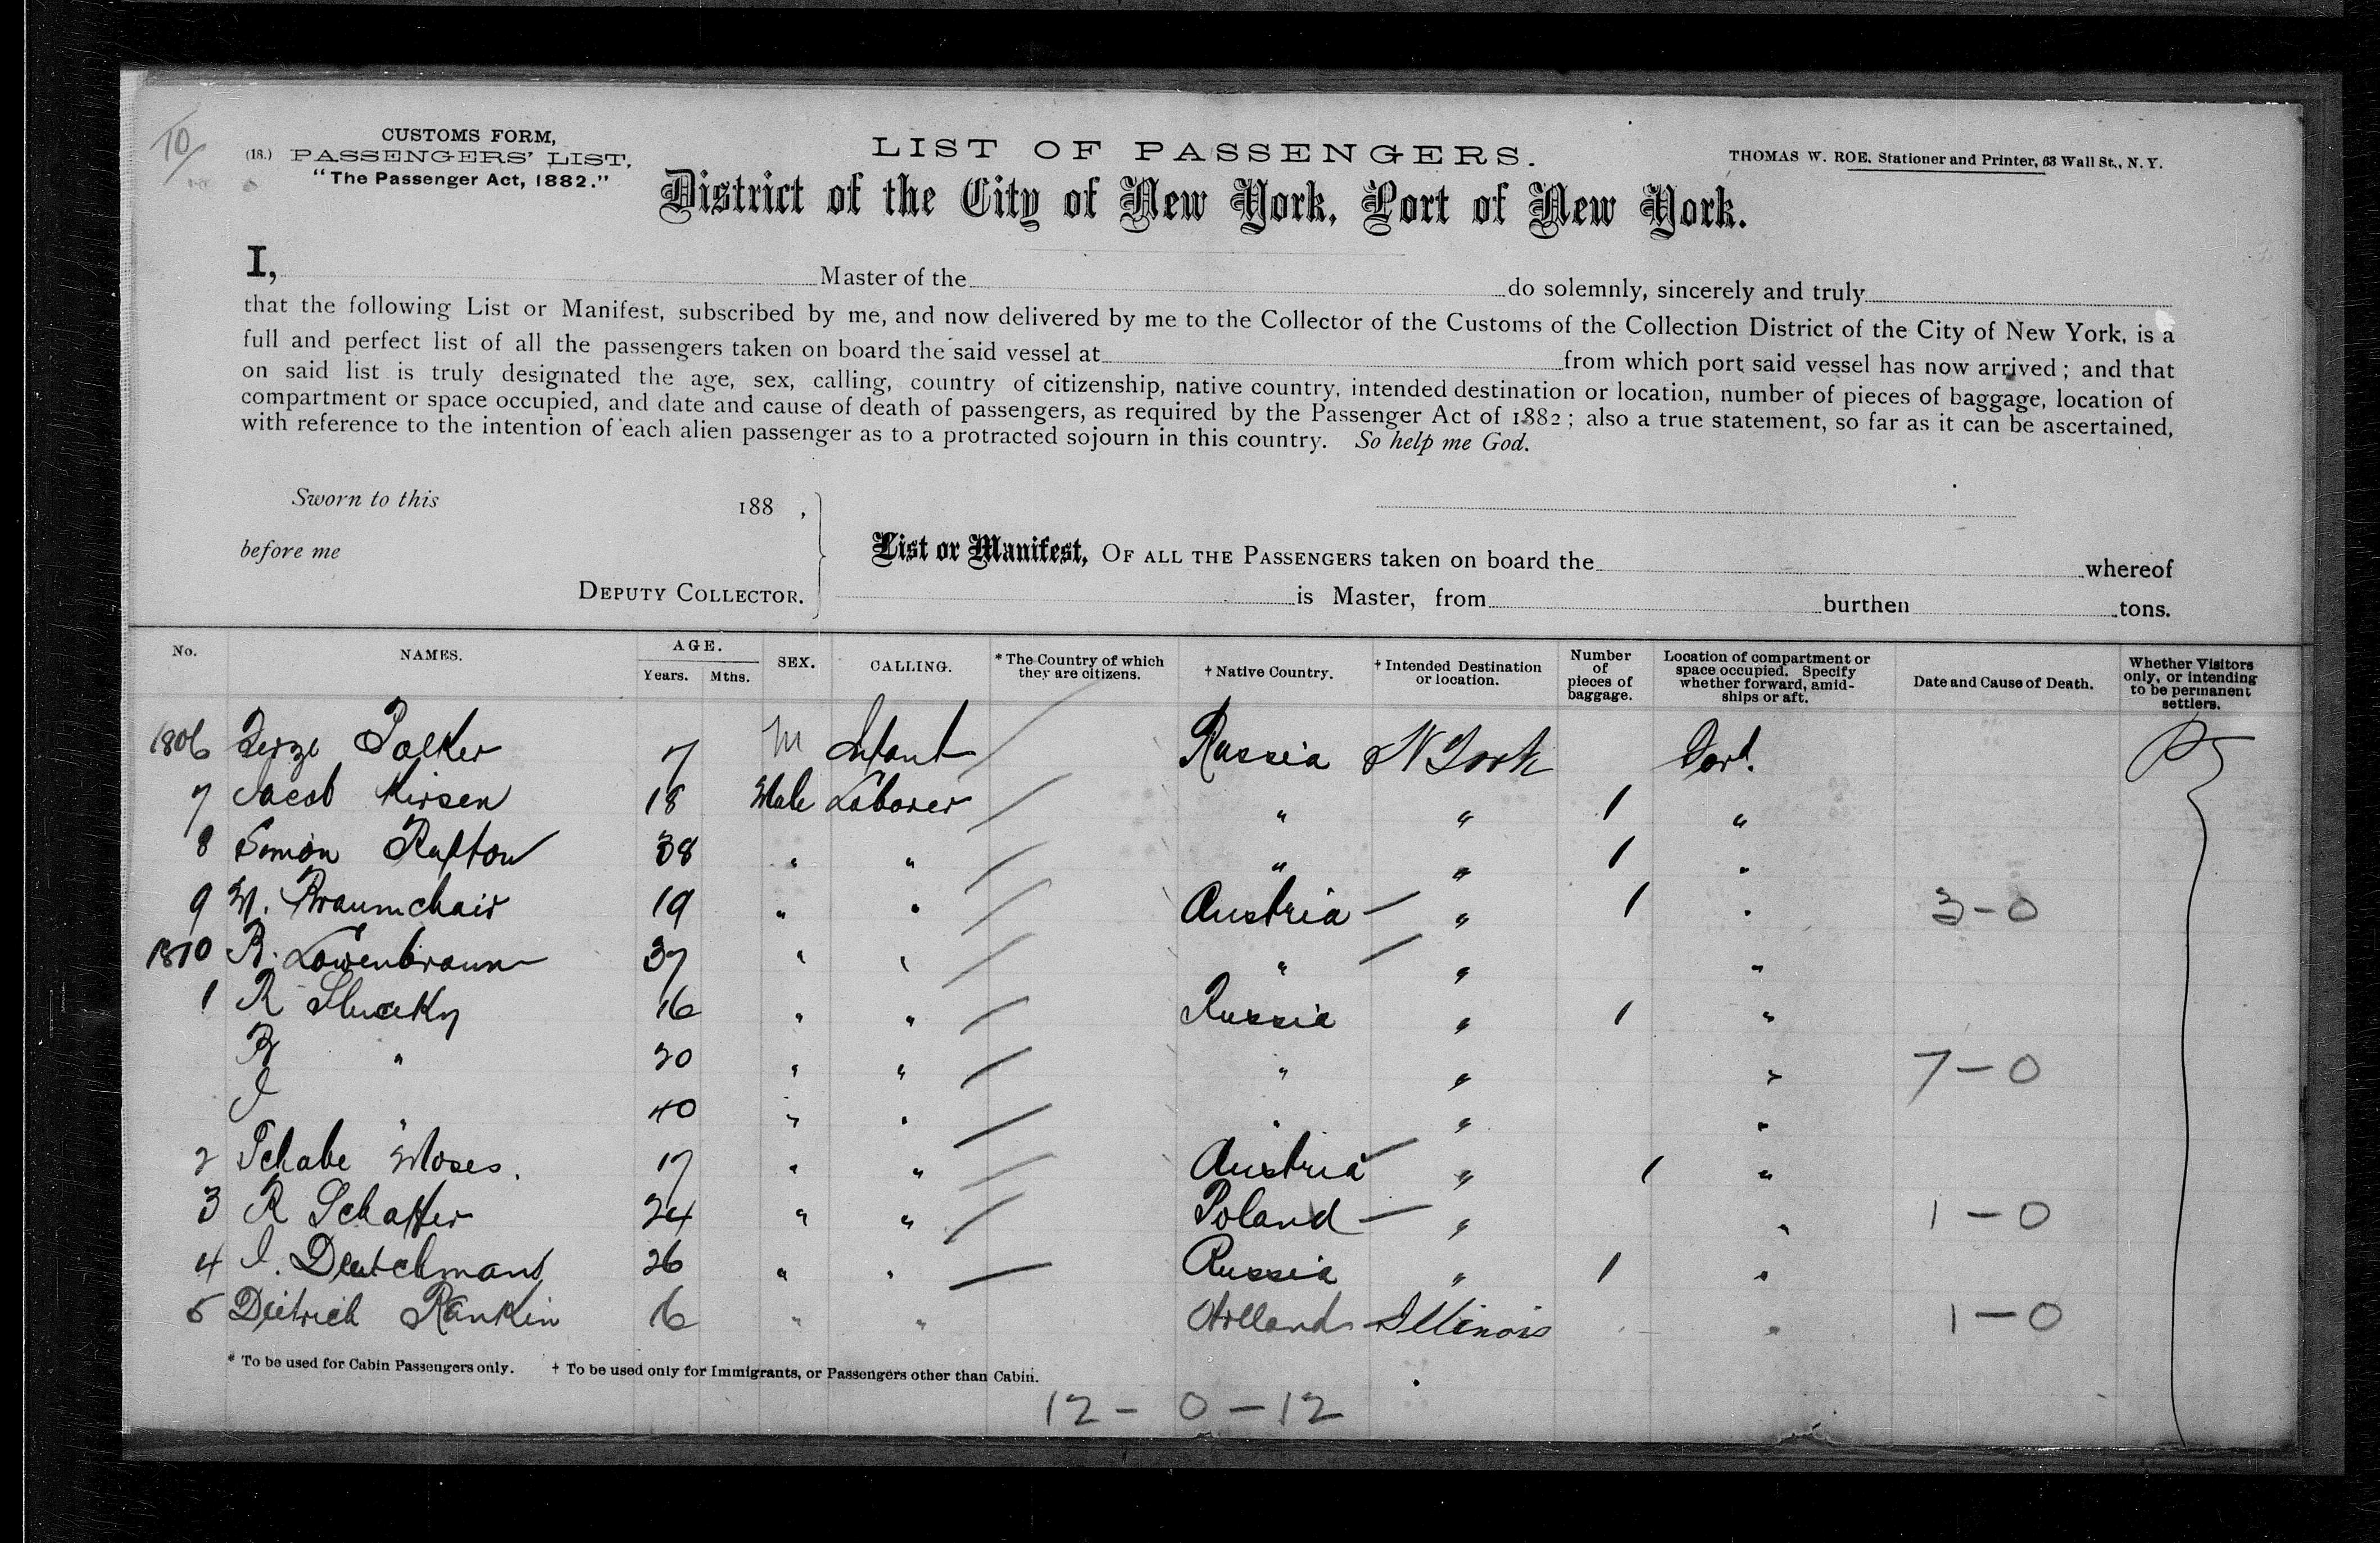 10/
CUSTOMS FORM,
(18.) PASSENGERS' LIST,
"The Passenger Act, 1882."
LIST OF PASSENGERS.
THOMAS W. ROE. Stationer and Printer, 63 Wall St., N. Y.
District of the City of New York, Port of New York.
I, Master of the do solemnly, sincerely and truly
that the following List or Manifest, subscribed by me, and now delivered by me to the Collector of the Customs of the Collection District of the City of New York, is a
full and perfect list of all the passengers taken on board the said vessel at from which port said vessel has now arrived; and that
on said list is truly designated the age, sex, calling, country of citizenship, native country, intended destination or location, number of pieces of baggage, location of
compartment or space occupied, and date and cause of death of passengers, as required by the Passenger Act of 1882; also a true statement, so far as it can be ascertained,
with reference to the intention of each alien passenger as to a protracted sojourn in this country. So help me God.
Sworn to this 188 ,
before me
DEPUTY COLLECTOR.
List or Manifest, OF ALL THE PASSENGERS taken on board the whereof
is Master, from burthen tons.
No. NAMES. AGE. Years. Mths. SEX. CALLING. * The Country of which they are citizens. † Native Country. † Intended Destination or location. Number of pieces of baggage. Location of compartment or space occupied. Specify whether forward, amidships or aft. Date and Cause of Death. Whether Visitors only, or intending to be permanent settlers.
1806 7 M Infant / Russia N York
7 Jacob Kirsen 18 Male Laborer / " " 1 "
8 Simon 38 " " / " " 1 "
9 19 " " / Austria — " 1 " 3-0
1810 R. Lowenbraun 37 " " / " — " "
1 R 16 " " / Russia " 1 "
B " 20 " " / " " " 7-0
I " 40 " " / " " "
2 Schabe Moses. 17 " " / Austria — " 1 "
3 R Schaffer 24 " " / Poland — " " 1-0
4 I. Deutchmans 26 " " / Russia " 1 "
5 Dietrich Rankin 16 " " Holland Illinois " 1-0
* To be used for Cabin Passengers only. † To be used only for Immigrants, or Passengers other than Cabin.
12 - 0 - 12